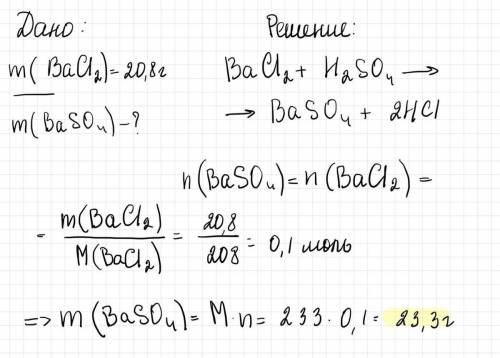 Дано:
Решение:
m(BaCl₂)=20,8г
m(BaSO₄)-?
BaCl₂ + H₂SO₄ →
→ BaSO₄ + 2HCl
n(BaSO₄)=n(BaCl₂) =
= m(BaCl₂)/M(BaCl₂) = 20,8/208 = 0,1 моль
=> m(BaSO₄)= M·n= 233·0,1= 23,3г